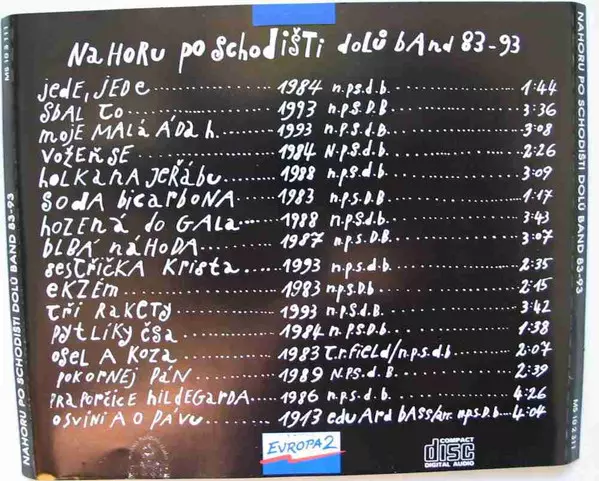 NAHORU PO SCHODIŠTI DOLŮ BAND 83-93
JEDE, JEDE 1984 N.P.S.D.B. 1:44
SBAL TO 1993 N.P.S.D.B 3:36
MOJE MALÁ ÁDA H. 1993 N.P.S.D.B. 3:08
VOŽEŇ SE 1984 N.P.S.D.B. 2:26
HOLKA NA JEŘÁBU 1988 N.P.S.D.B. 3:09
SODA BICARBONA 1983 N.P.S.D.B 1:17
HOZENÁ DO GALA 1988 N.P.S.D.B. 3:43
BLBÁ NÁHODA 1987 N.P.S.D.B. 3:07
SESTŘIČKA KRISTA 1993 N.P.S.D.B. 2:35
EKZÉM 1983 N.P.S.D.B 2:15
TŘI RAKETY 1993 N.P.S.D.B. 3:42
PYTLÍKY ČSA 1984 N.P.S.D.B. 1:38
OSEL A KOZA 1983 T.R.FIELD/N.P.S.D.B 2:07
POKORNEJ PÁN 1989 N.P.S.D.B 2:39
PRAPORČICE HILDEGARDA 1986 N.P.S.D.B. 4:26
O SVINI A O PÁVU 1913 EDUARD BASS/ARR. N.P.S.D.B. 4:04
EVROPA 2
COMPACT
disc
DIGITAL AUDIO
NAHORU PO SCHODISTI DOLŮ BAND 83-93
NAHORU PO SCHODISTI DOLŮ BAND 83-93